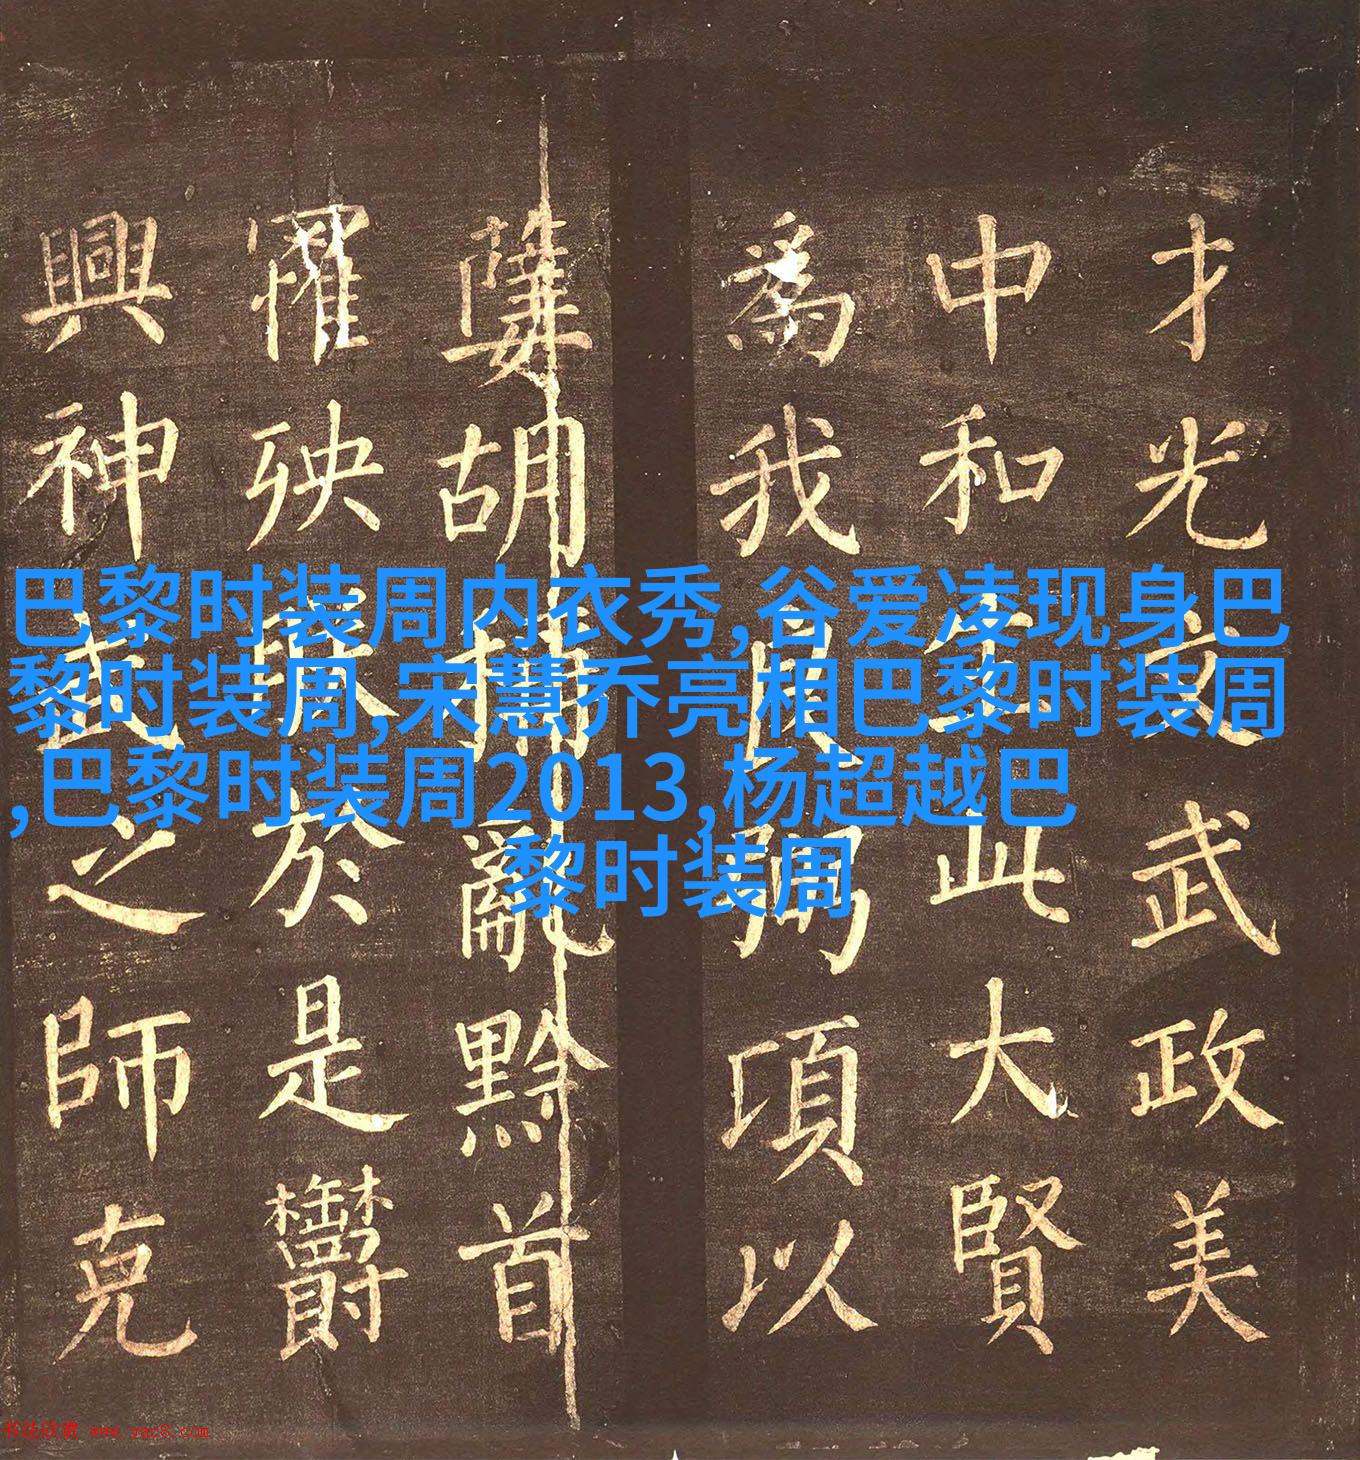 巴黎时装周内衣秀,谷爱凌现身巴
黎时装周,宋慧乔亮相巴黎时装周
,巴黎时装周2013,杨超越巴
黎时装周
才光文武政美
中和生此大賢
為我良弼項以
孽胡稱亂黔首
罹殃於是鬱
興神之師克
书法欣赏 www.yac8.com